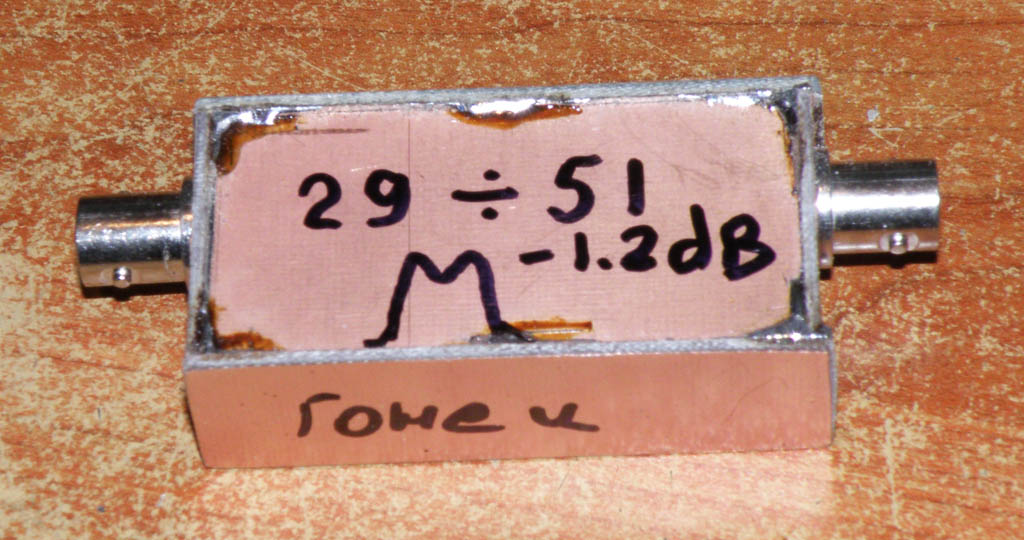 29 ÷ 51
-1.2dB
гонек